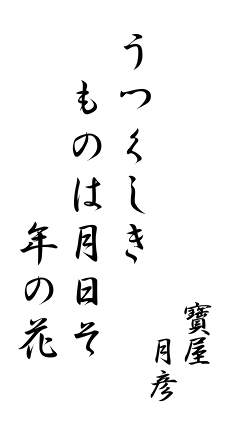 寶屋
月彦
うつくしき
ものは月日そ
年の花